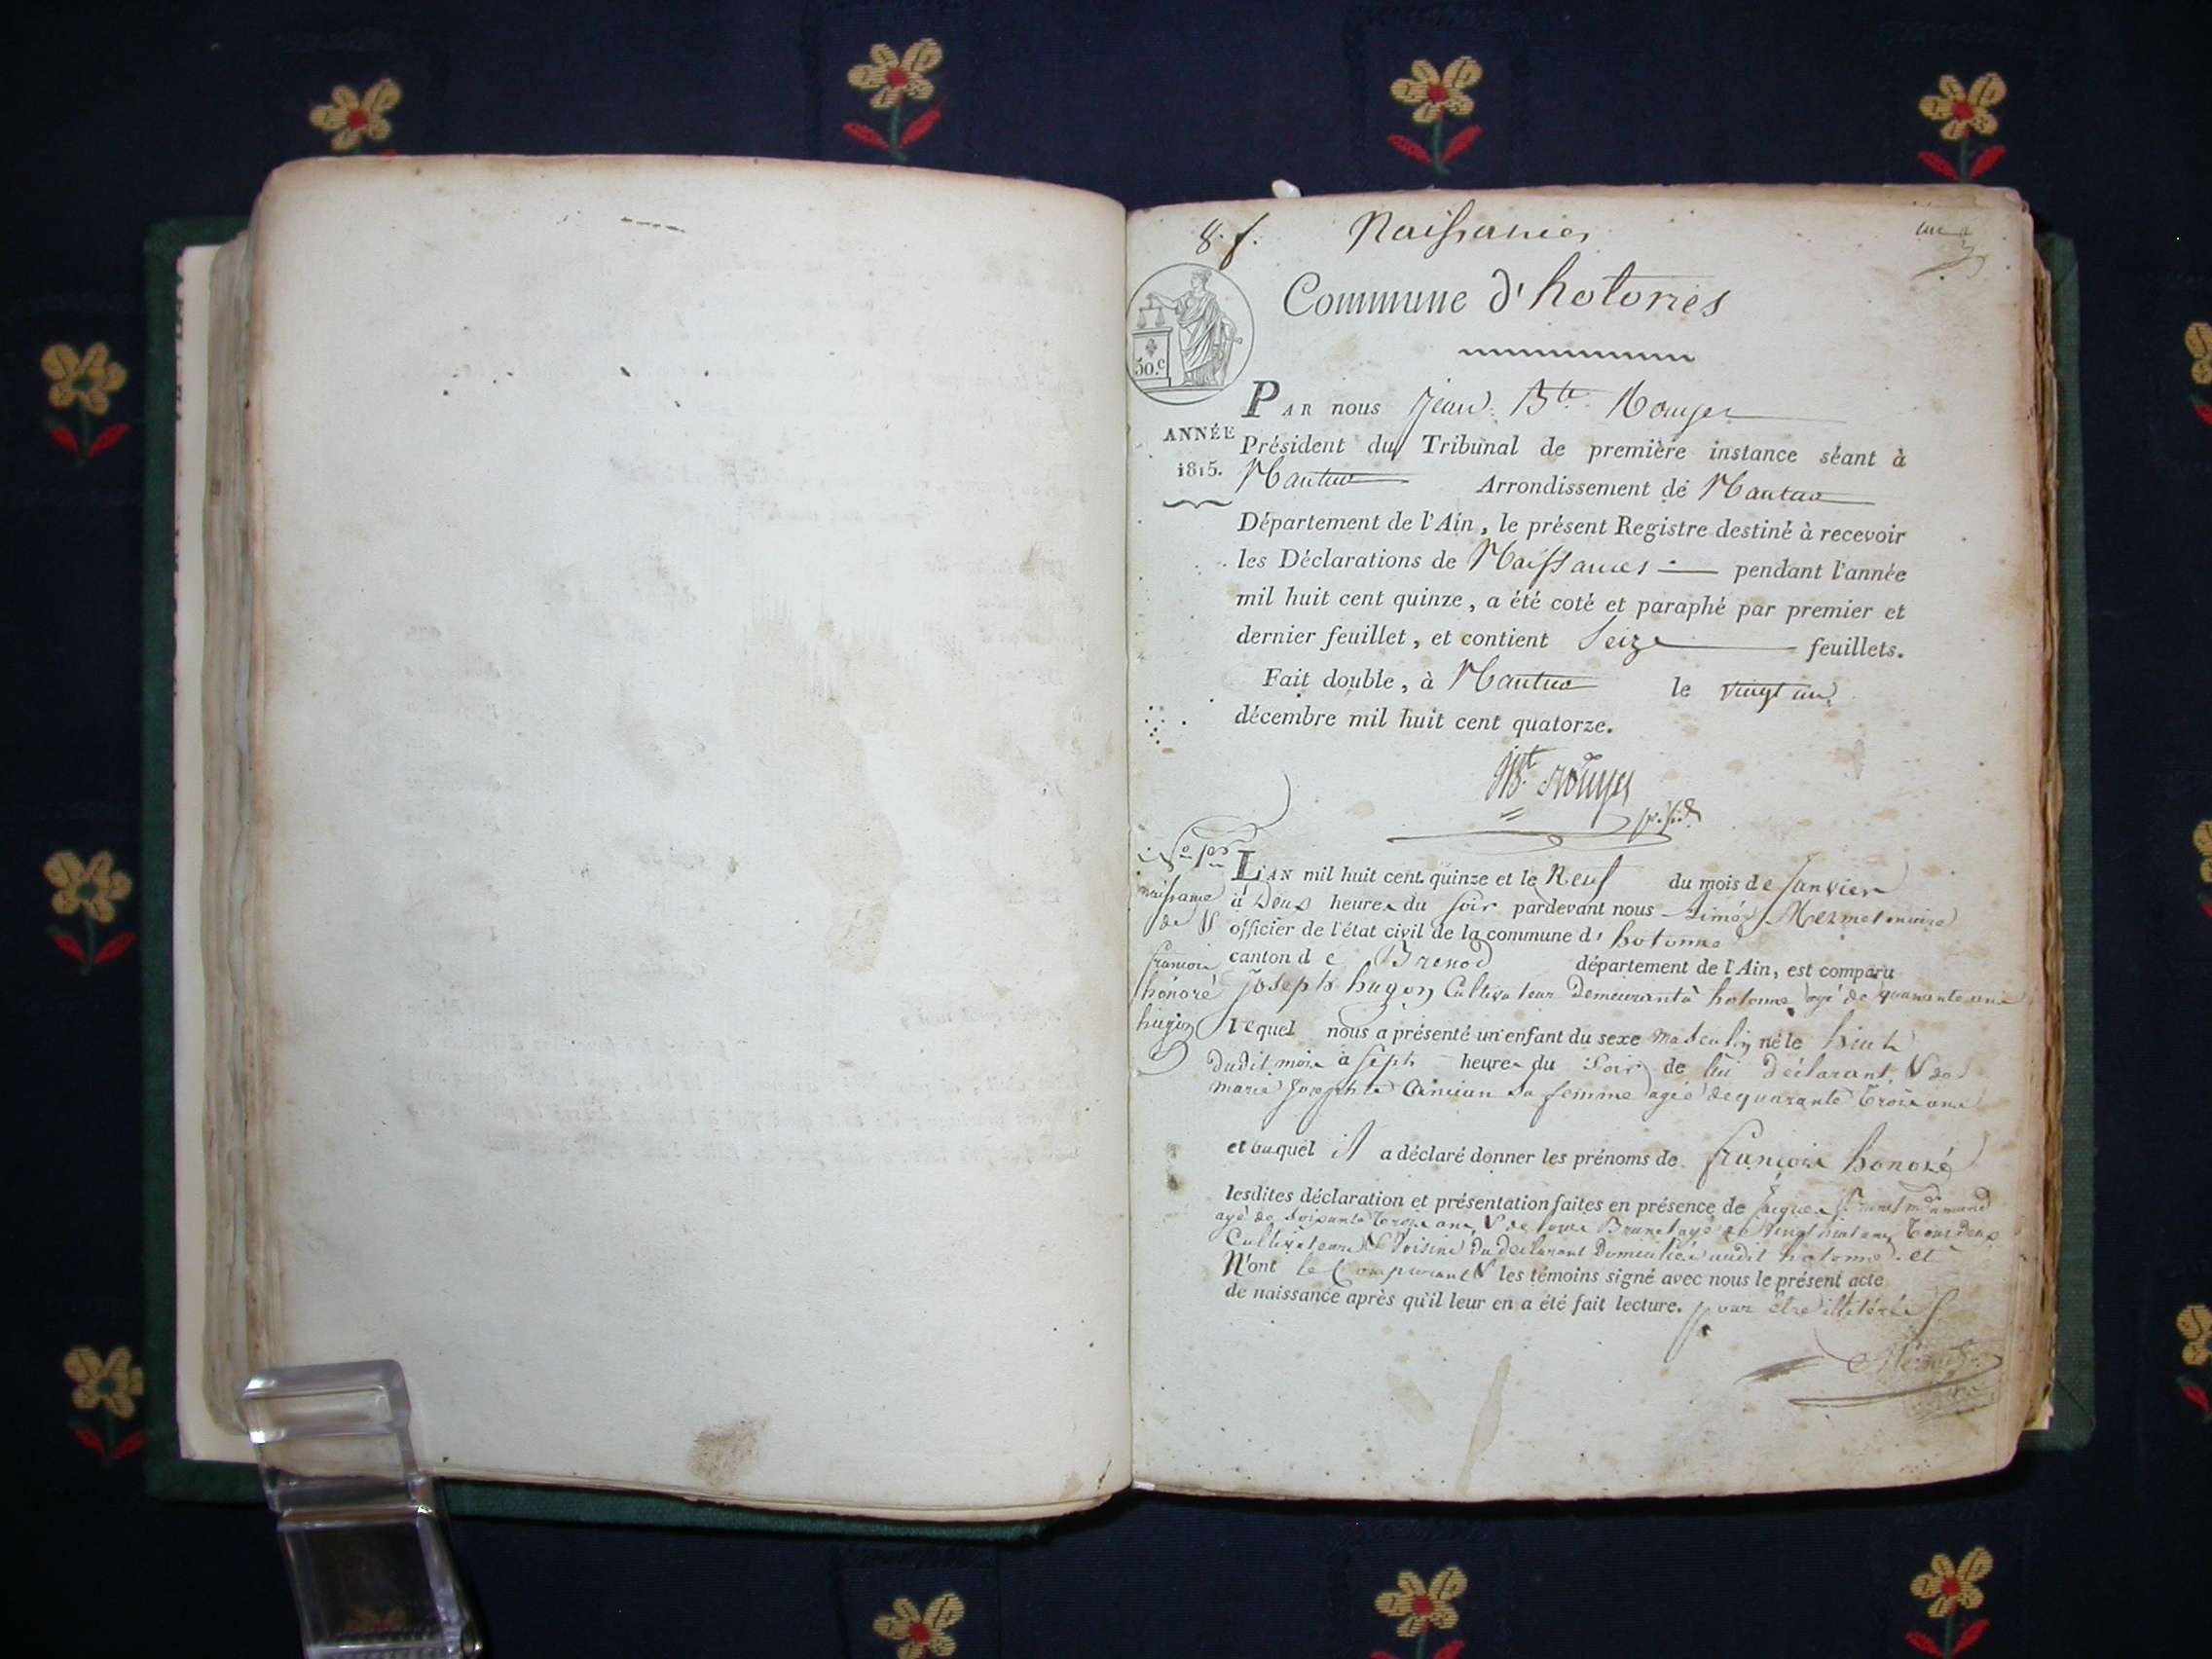 8. f. Naissances
Commune d'hotones
50.c
PAR nous Jean Bte Rouyer
ANNÉE
1815.
Président du Tribunal de première instance séant à
Nantua Arrondissement de Nantua
Département de l'Ain, le présent Registre destiné à recevoir
les Déclarations de Naissances pendant l'année
mil huit cent quinze, a été coté et paraphé par premier et
dernier feuillet, et contient Seize feuillets.
Fait double, à Nantua le vingt un
décembre mil huit cent quatorze.
JBt Rouyer
naissance
de
francois
honoré
hugon
L'AN mil huit cent quinze et le Neuf du mois de Janvier
à Deux heures du soir pardevant nous Aimé Mermet maire
officier de l'état civil de la commune d' hotonne
canton d e Brenod département de l'Ain, est comparu
Joseph hugon Cultivateur Demeurant à hotonne agé de quarante ans
lequel nous a présenté un enfant du sexe masculin né le huit
dudit mois à Sept heures du Soir de lui déclarant & de
marie Josephte sa femme agée de quarante trois ans
et auquel il a déclaré donner les prénoms de francois honoré
lesdites déclaration et présentation faites en présence de Jacques
agé de soixante trois ans & de louis Brunet agé de vingt huit ans tous deux
Cultivateurs & voisins du déclarant Domiciliés audit hotonne. et
N'ont le Comparant & les témoins signé avec nous le présent acte
de naissance après qu'il leur en a été fait lecture. pour être illitérés
Mermet